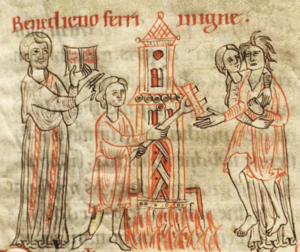 Benedictio ferri igne.